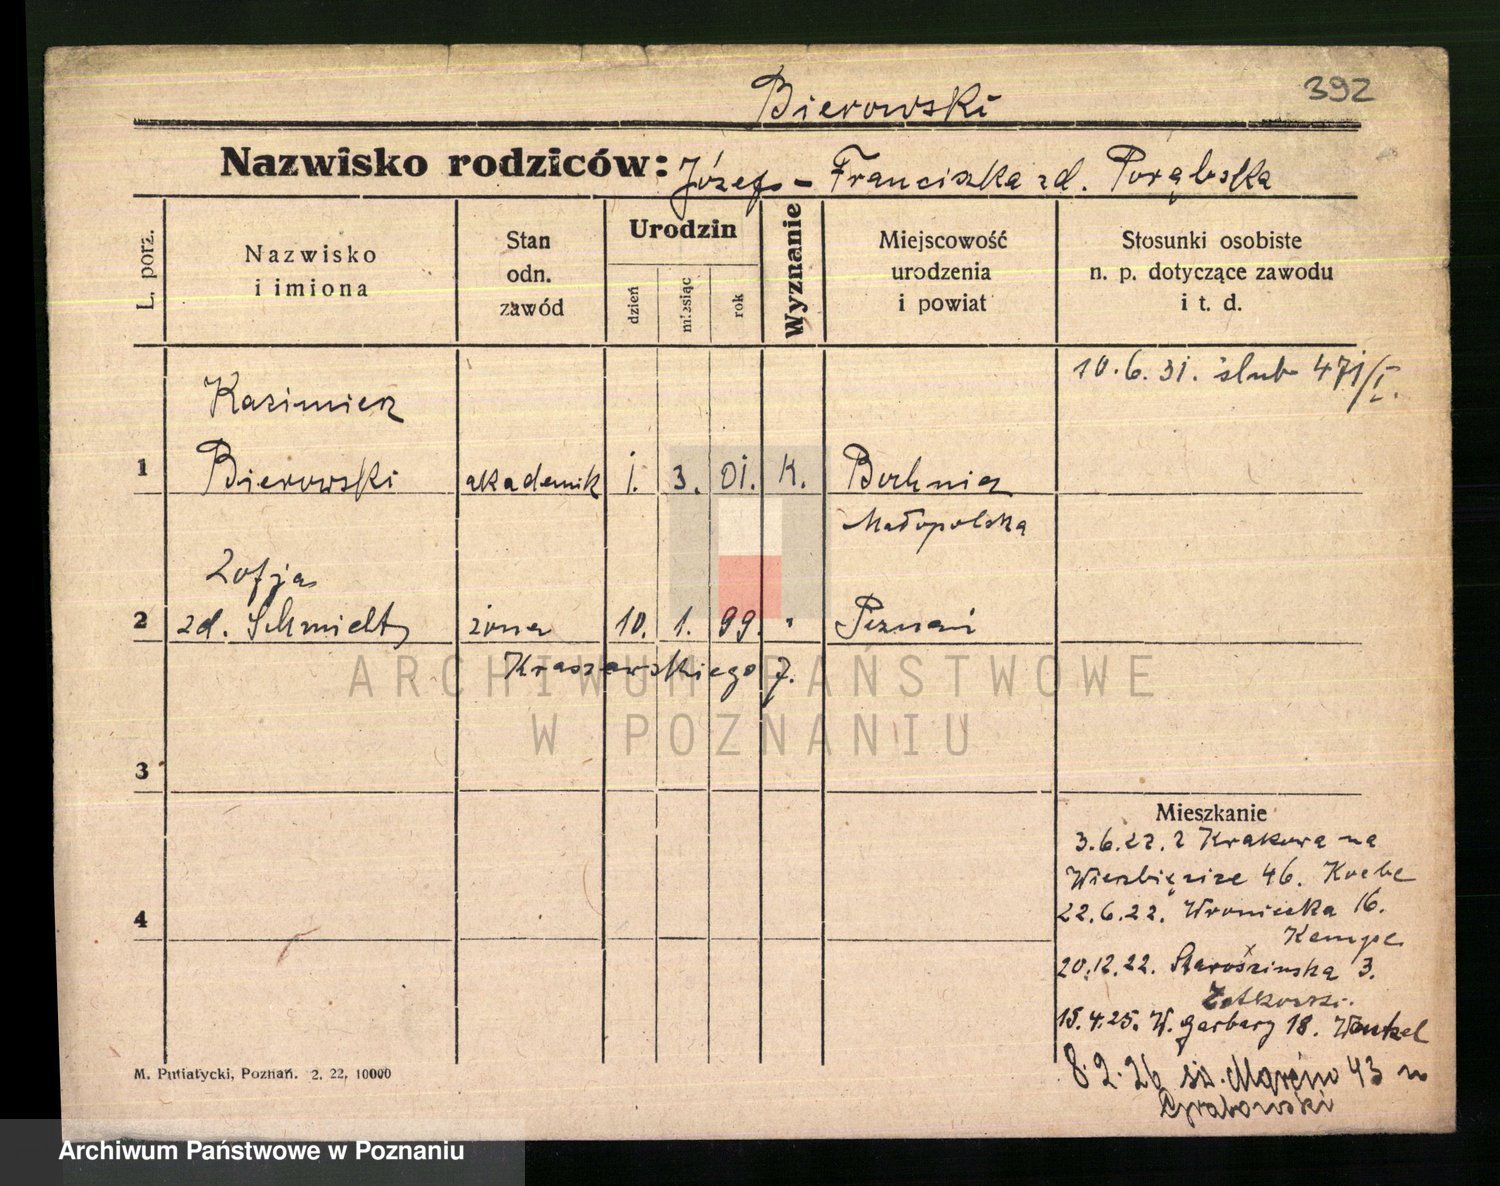 392
Bierowski
Nazwisko rodziców: Józef - Franciszka zd. Porąbska
L. porz.
Nazwisko
i imiona
Stan
odn.
zawód
Urodzin
dzień
miesiąc
rok
Wyznanie
Miejscowość
urodzenia
i powiat
Stosunki osobiste
n. p. dotyczące zawodu
i t. d.
10.6.31. ślub 471/I.
Kazimierz
1 Bierowski akademik 1. 3. 01. K. Bochnia
Małopolska
Zofja
2 zd. Schmidt żona 10. 1. 99. " Poznań
Kraszewskiego 7.
ARCHIWUM PAŃSTWOWE
W POZNANIU
3
Mieszkanie
3.6.22. z Krakowa na
Wierzbięcice 46.
4
22.6.22. Wroniecka 16.
Kempe
20.12.22. 3.
15.4.25. W. Garbary 18.
8.2.26 św. Marcin 43
Grabowski
M. Putiatycki, Poznań. 2. 22, 10000
Archiwum Państwowe w Poznaniu